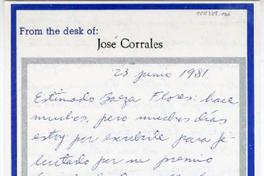 From the desk of:
José Corrales
23 junio 1981
Estimado Baeza Flores: hace
muchos, pero muchos días
estoy por escribirle para fe-
licitarlo por su premio